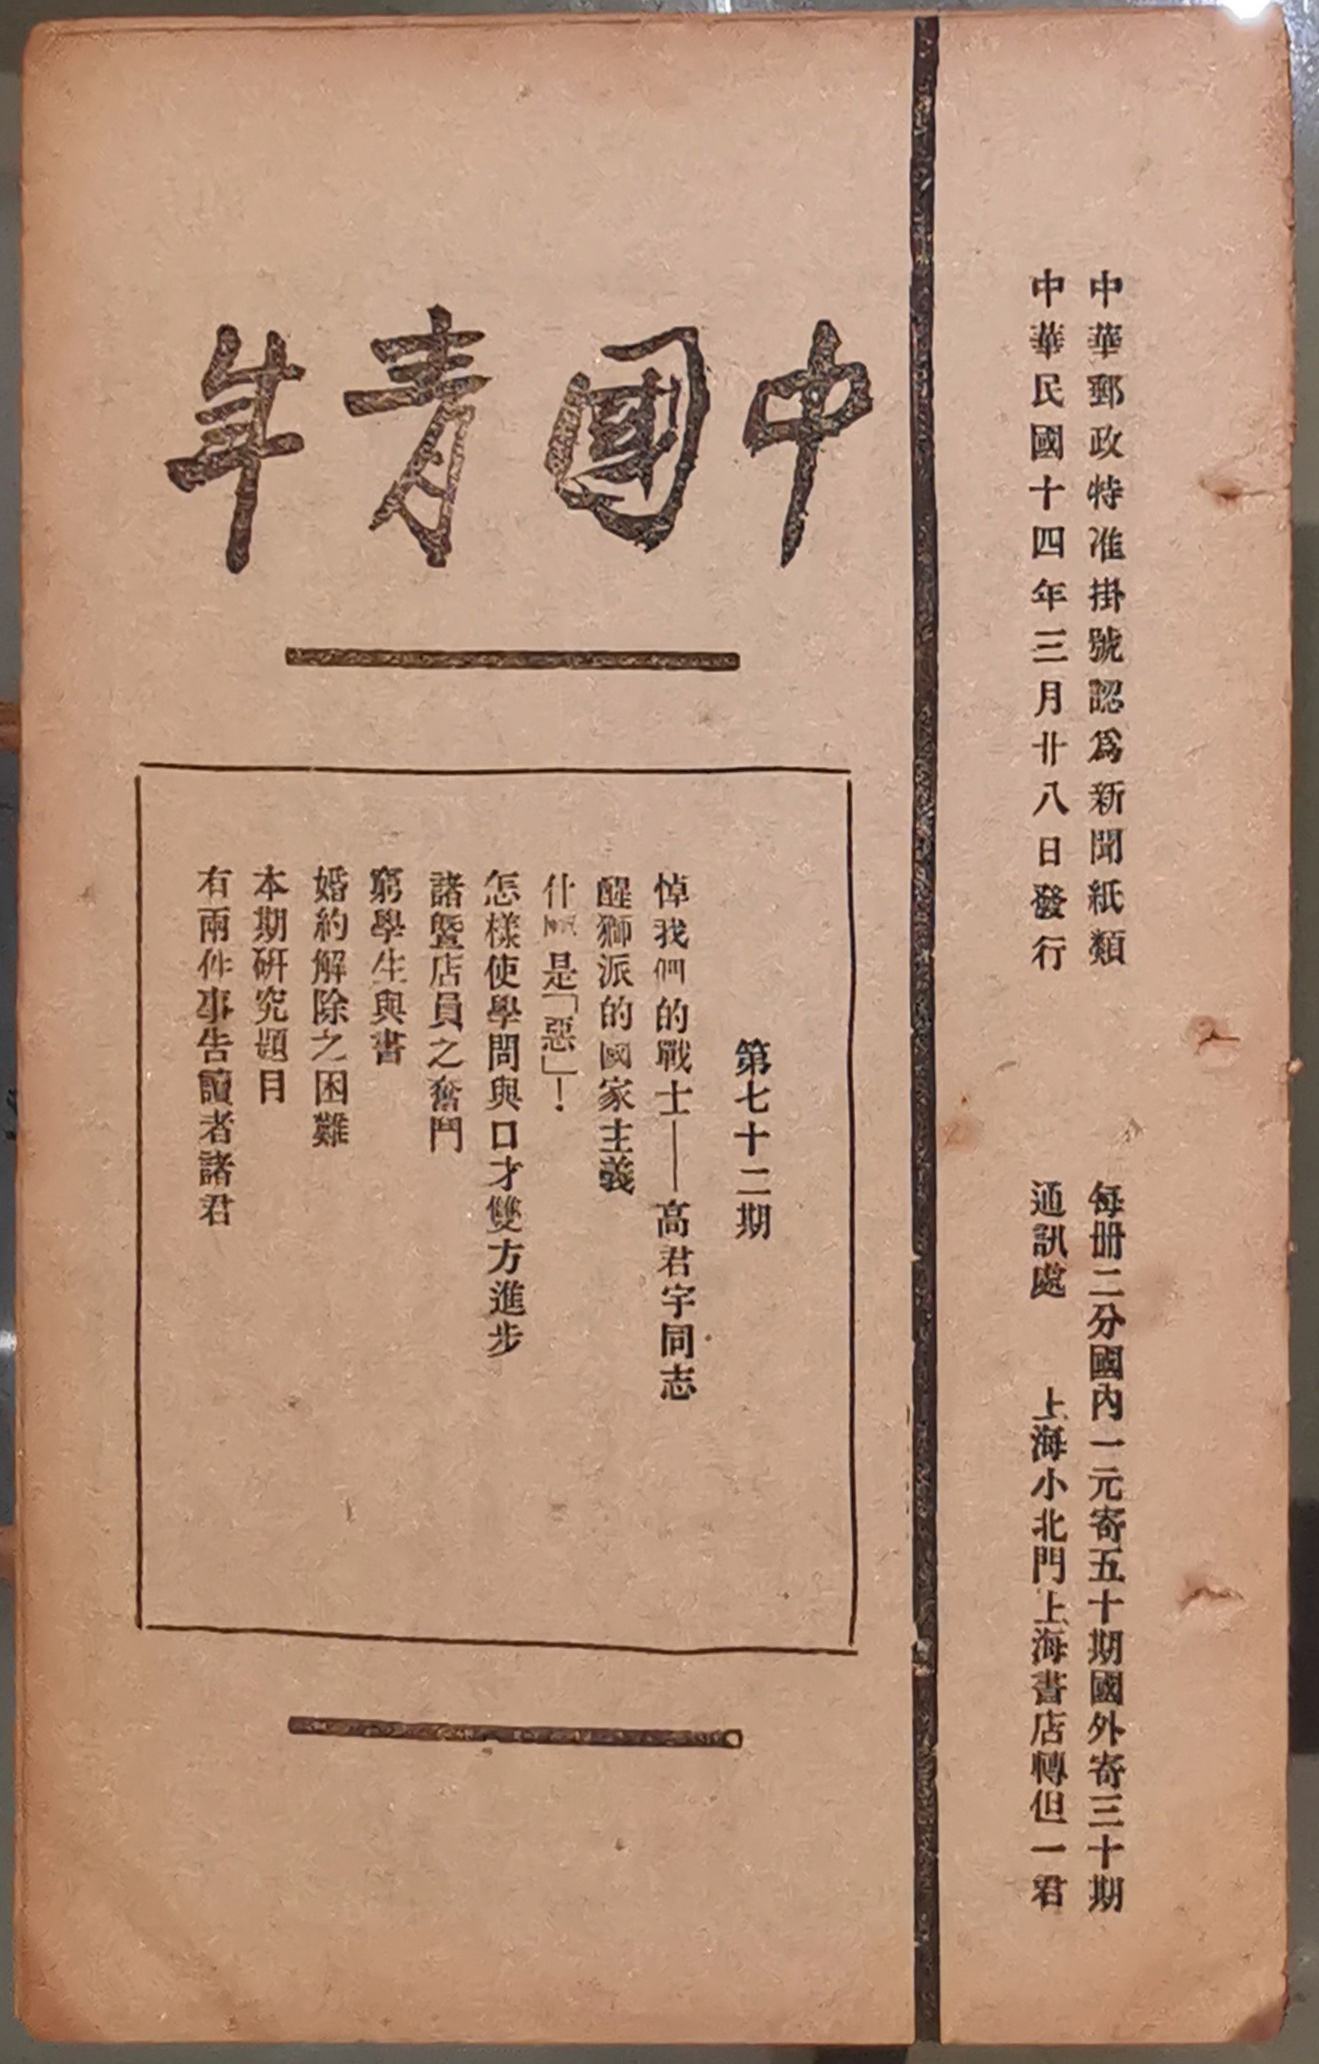 中華郵政特准掛號認爲新聞紙類
每冊二分國內一元寄五十期國外寄三十期
中華民國十四年三月廿八日發行
通訊處　上海小北門上海書店轉但一君
中國青年
第七十二期
悼我們的戰士——高君宇同志
醒獅派的國家主義
什麽是「惡」！
怎樣使學問與口才雙方進步
諸暨店員之奮鬥
窮學生與書
婚約解除之困難
本期研究題目
有兩件事告讀者諸君